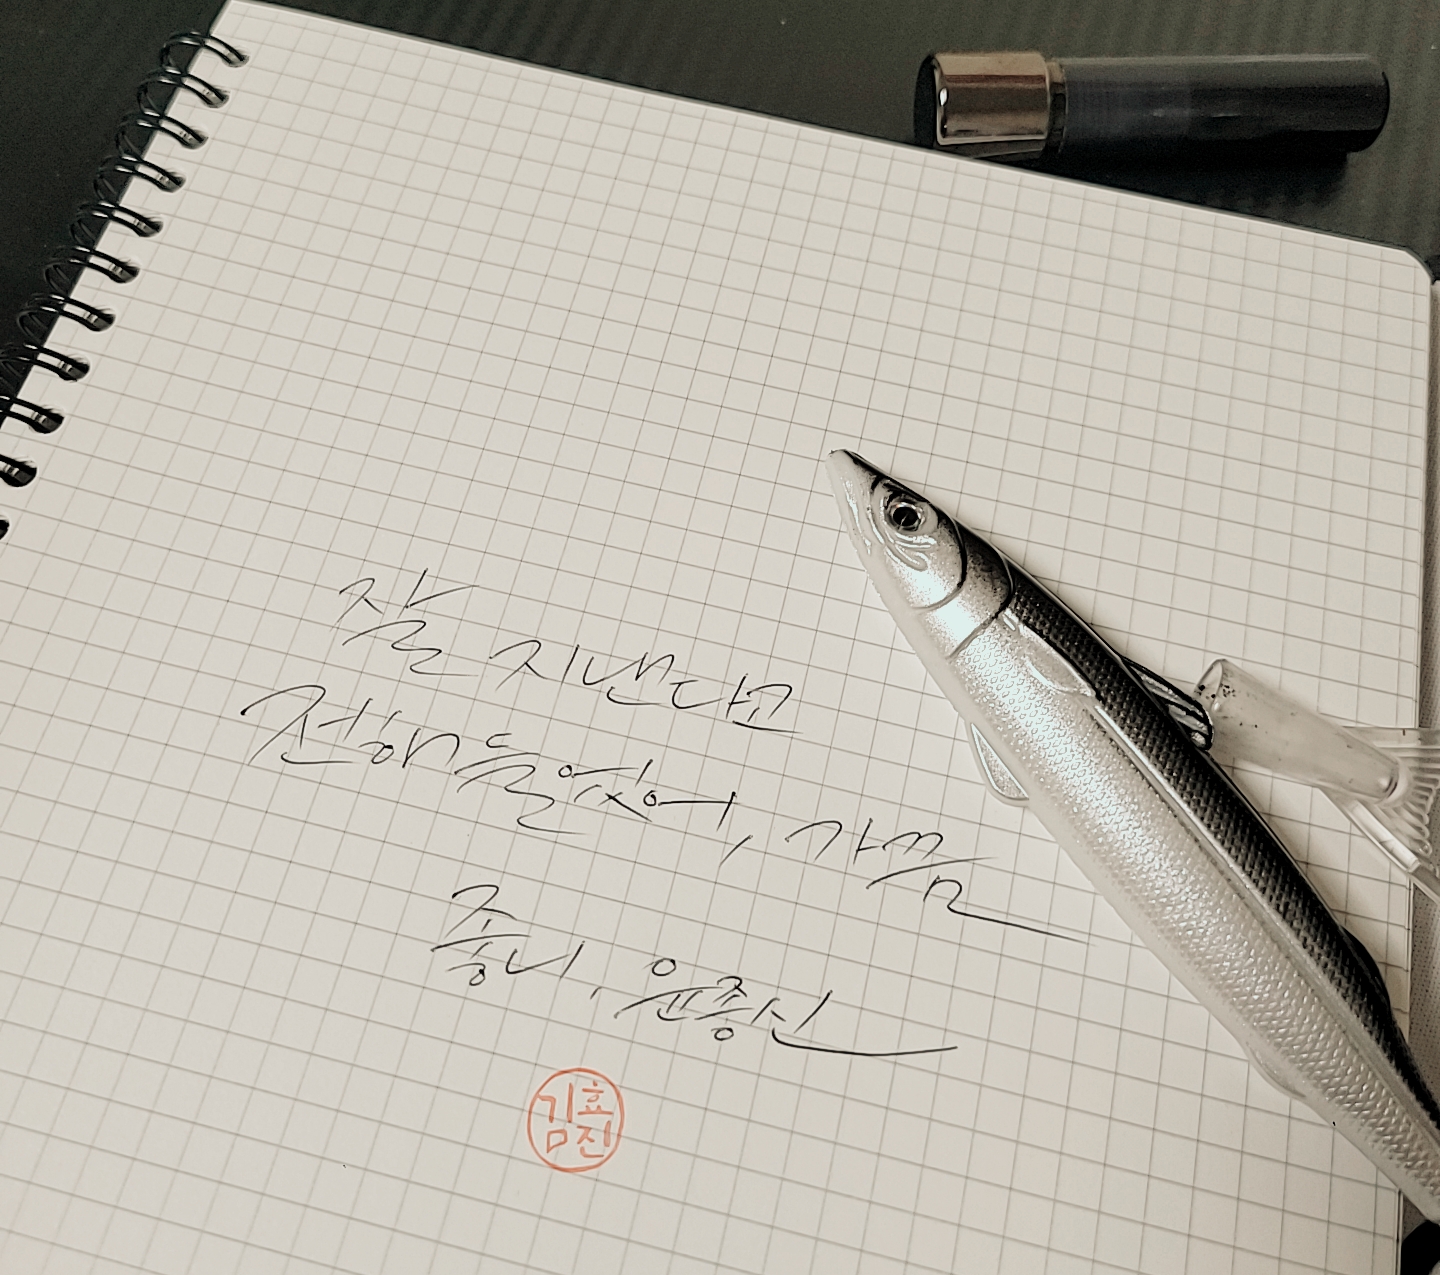 잘 지낸다고
전해 들었어, 가끔
좋니, 윤종신
김효진